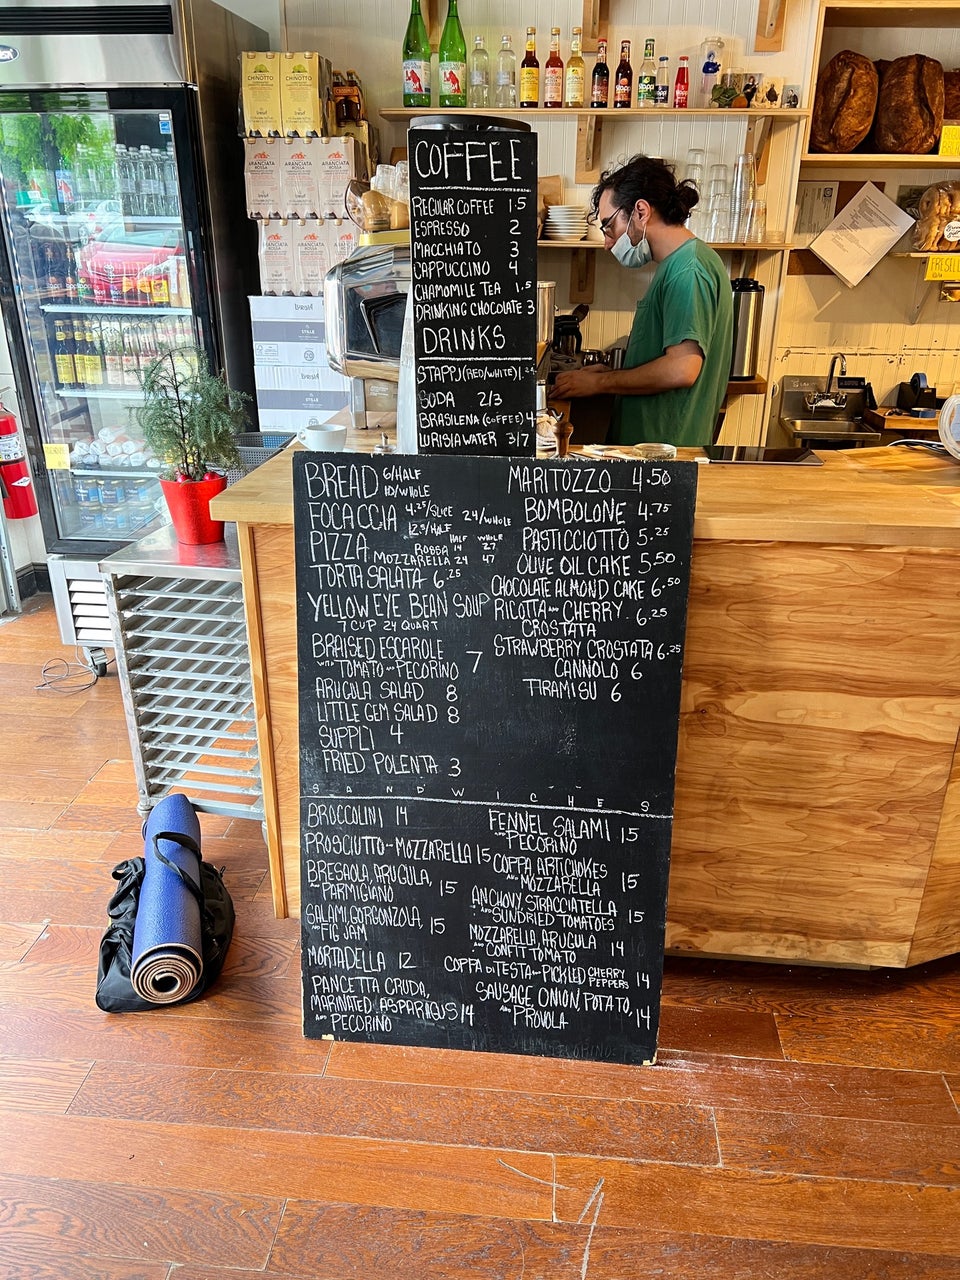 CHINOTTO
CHINOTTO
ARANCIATA
ROSSA
ARANCIATA
ROSSA
COFFEE
REGULAR COFFEE 1.5
ESPRESSO 2
MACCHIATO 3
CAPPUCCINO 4
CHAMOMILE TEA 1.5
DRINKING CHOCOLATE 3
DRINKS
STAPPJ (RED/WHITE)
SODA 2/3
BRASILENA (COFFEE) 4
LURISIA WATER 3/7
BREAD 6/HALF
10/WHOLE
FOCACCIA 4.25/SLICE 24/WHOLE
12.5/HALF
PIZZA HALF WHOLE
ROSSA 14 27
MOZZARELLA 24 47
TORTA SALATA 6.25
YELLOW EYE BEAN SOUP
7 CUP 24 QUART
BRAISED ESCAROLE
WITH TOMATO AND PECORINO 7
ARUGULA SALAD 8
LITTLE GEM SALAD 8
SUPPLI 4
FRIED POLENTA 3
MARITOZZO 4.50
BOMBOLONE 4.75
PASTICCIOTTO 5.25
OLIVE OIL CAKE 5.50
CHOCOLATE ALMOND CAKE 6.50
RICOTTA AND CHERRY 6.25
CROSTATA
STRAWBERRY CROSTATA 6.25
CANNOLO 6
TIRAMISU 6
SANDWICHES
BROCCOLINI 14
PROSCIUTTO-MOZZARELLA 15
BRESAOLA, ARUGULA,
AND PARMIGIANO 15
SALAMI, GORGONZOLA,
AND FIG JAM 15
MORTADELLA 12
PANCETTA CRUDA,
MARINATED ASPARAGUS 14
AND PECORINO
FENNEL SALAMI 15
AND PECORINO
COPPA, ARTICHOKES
AND MOZZARELLA 15
ANCHOVY, STRACCIATELLA
AND SUNDRIED TOMATOES 15
MOZZARELLA, ARUGULA
AND CONFIT TOMATO 14
COPPA DI TESTA AND PICKLED CHERRY
PEPPERS 14
SAUSAGE, ONION, POTATO,
AND PROVOLA 14